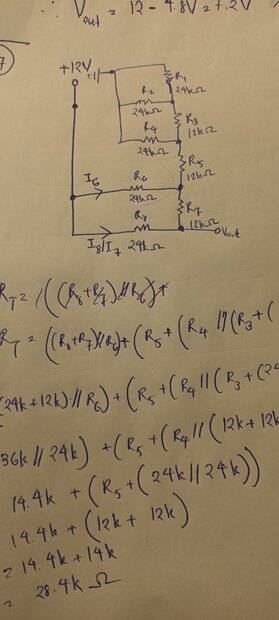 ∴ Vout = 12 - 4.8V = 7.2V
7
+12V
R1
24kΩ
R2
24kΩ
R3
12kΩ
R4
24kΩ
R5
12kΩ
I6
R6
24kΩ
R7
12kΩ
I8/I7
24kΩ
Vout
RT = ((R8+R7)//R6)+
RT = ((R8+R7)//R6)+(R5+(R4//(R3+(
(24k+12k)//R6)+(R5+(R4//(R3+(24
36k//24k) +(R5+(R4//(12k+12k
14.4k + (R5+(24k//24k))
14.4k + (12k+ 12k)
= 14.4k+14k
= 28.4kΩ